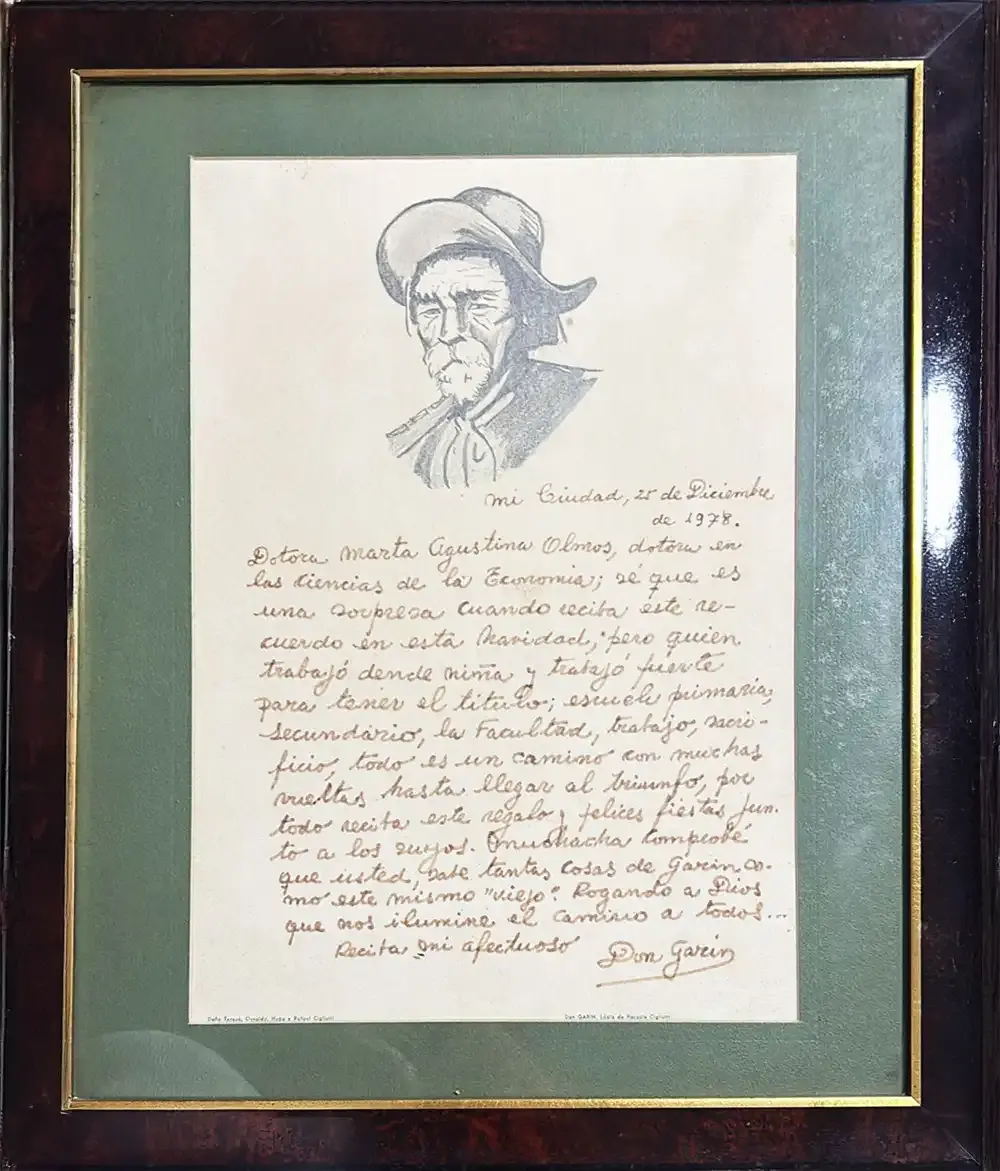 mi Ciudad, 25 de Diciembre
de 1978.
Dotora Marta Agustina Olmos, dotora en
las Ciencias de la Economia; sé que es
una sorpresa cuando reciba este re-
cuerdo en esta Navidad; pero quien
trabajó dende niña y trabajó fuerte
para tener el titulo; escuela primaria,
Secundário, la Facultad, trabajo, sacri-
ficio, todo es un camino con muchas
vueltas hasta llegar al triunfo, por
todo reciba este regalo y felices fiestas jun-
to a los suyos. muchacha comprobé
que usted, sabe tantas cosas de Garin co-
mo este mismo "viejo". Rogando a Dios
que nos ilumine el camino a todos...
Reciba mi afectuoso
Don Garin
Hugo y Rafael Cigliutti
Don GARIN, de Cigliutti